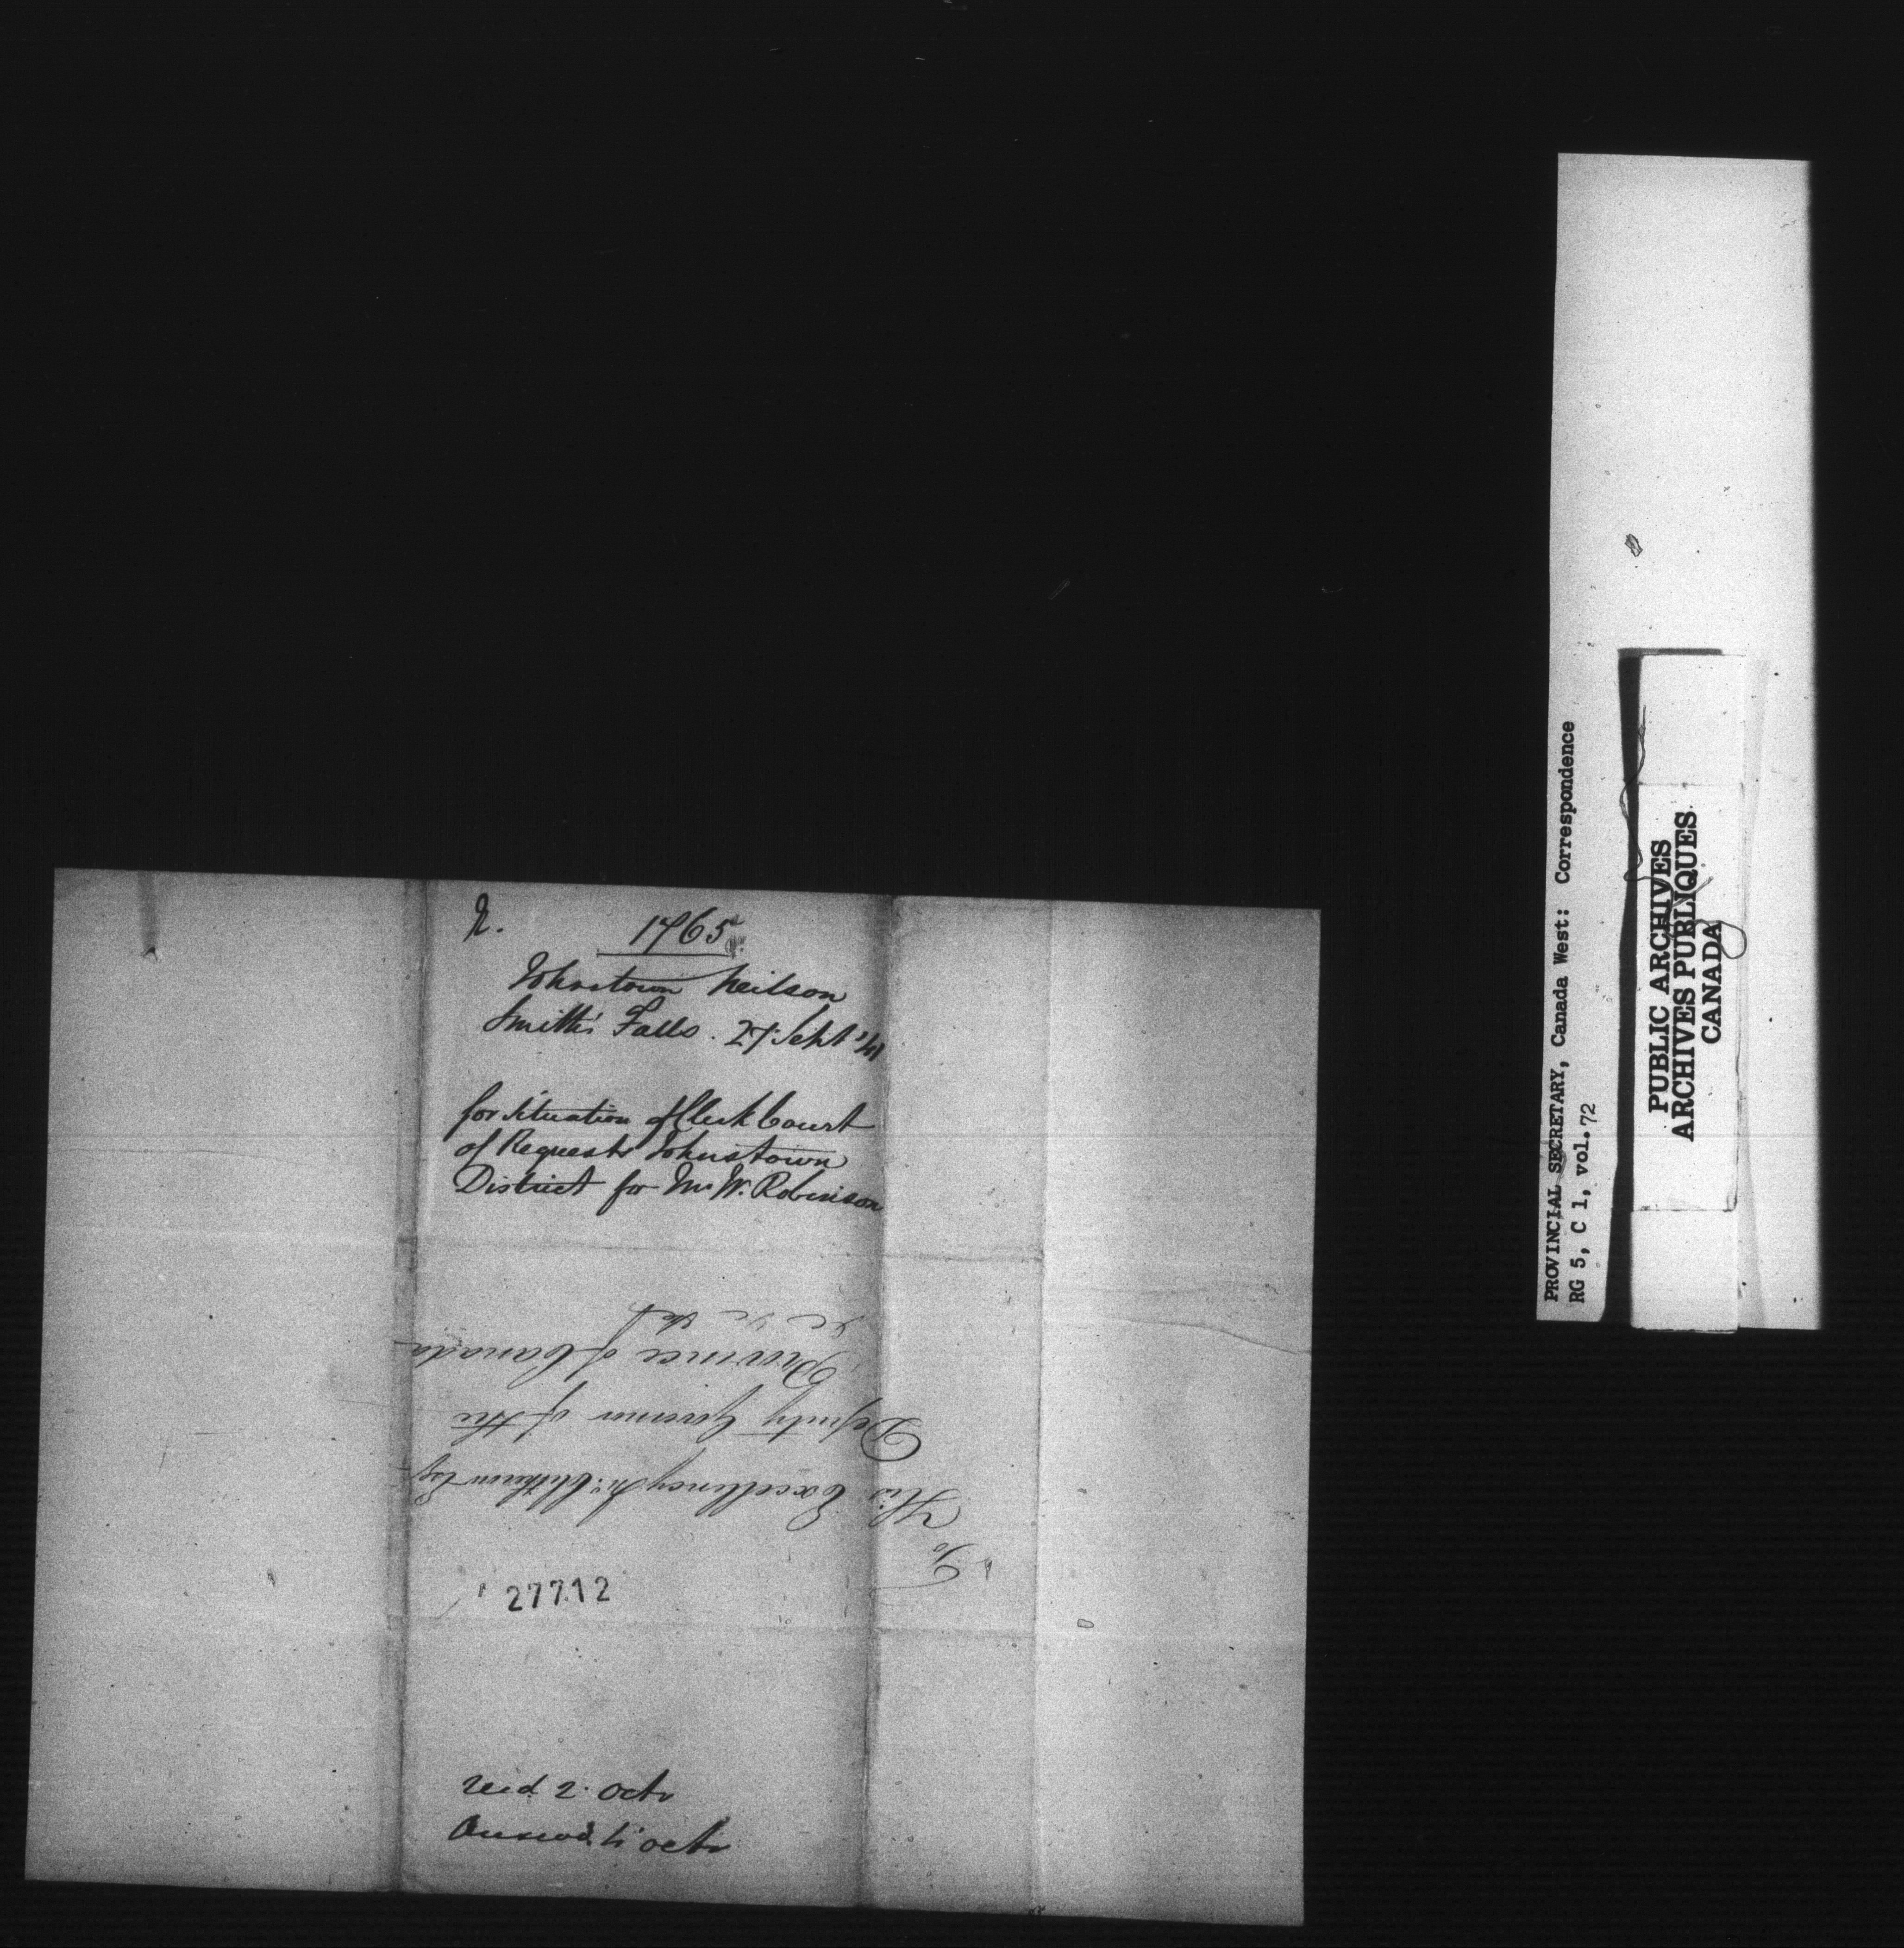 N.
1765
Johnstown Neilson
Smith's Falls. 27 Sept '41
for situation of Clerk Court
of Requests Johnstown
District for Mr W. Robinson
To
His Excellency Esq
Deputy Governor of the
Province of Canada
&c &c &c
27712
Recd 2 Octr
Answd. 4 Octr
PROVINCIAL SECRETARY, Canada West: Correspondence
RG 5, C 1, vol. 72
PUBLIC ARCHIVES
ARCHIVES PUBLIQUES
CANADA